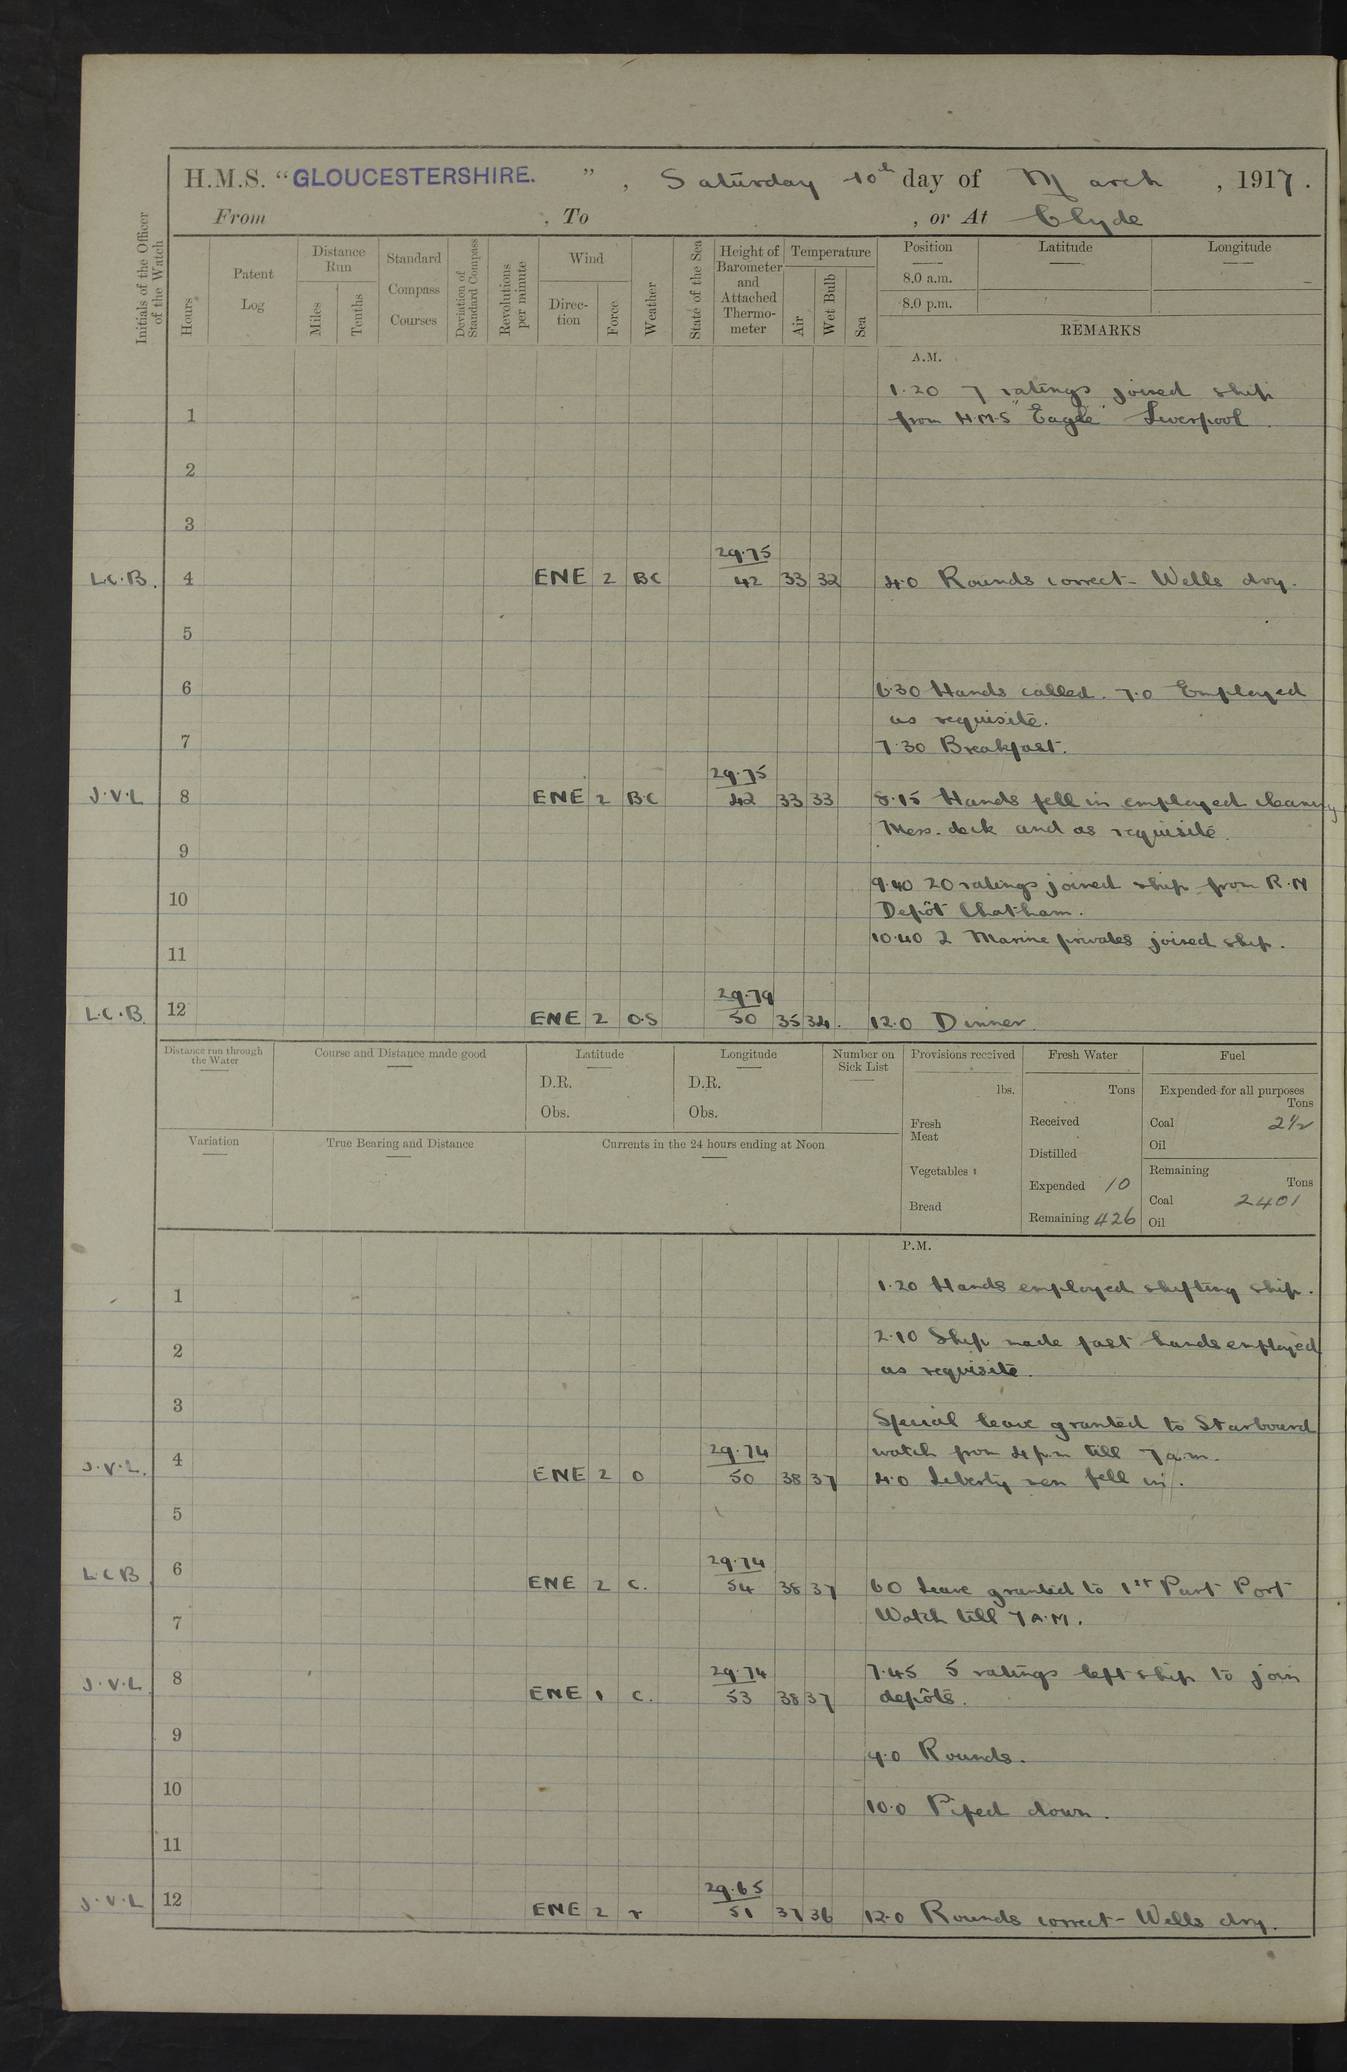 H.M.S. “GLOUCESTERSHIRE. ” , Saturday 10th day of March , 1917.
From , To , or At Clyde
Initials of the Officer of the Watch
Hours
Patent Log
Distance Run
Miles
Tenths
Standard Compass Courses
Deviation of Standard Compass
Revolutions per minute
Wind
Direc-tion
Force
Weather
State of the Sea
Height of Barometer and Attached Thermo-meter
Temperature
Air
Wet Bulb
Sea
Position Latitude Longitude
8.0 a.m.
8.0 p.m.
REMARKS
A.M.
1.20 7 ratings joined ship
1 from H.M.S "Eagle" Liverpool.
2
3
29.75
L.C.B. 4 ENE 2 BC 42 33 32 4.0 Rounds correct - Wells dry.
5
6 6.30 Hands called. 7.0 Employed
as requisite.
7 7.30 Breakfast.
29.75
J.V.L 8 ENE 2 B.C 42 33 33 8.15 Hands fell in employed cleaning
Mess. deck and as requisite.
9
9.40 20 ratings joined ship from R.N
10 Depôt Chatham.
10.40 2 Marine privates joined ship.
11
29.79
L.C.B. 12 ENE 2 O.S 50 35 34. 12.0 Dinner.
Distance run through the Water
Course and Distance made good
Latitude
D.R.
Obs.
Longitude
D.R.
Obs.
Number on Sick List
Provisions received
lbs.
Fresh Meat
Vegetables
Bread
Fresh Water
Tons
Received
Distilled
Expended 10
Remaining 426
Fuel
Expended for all purposes
Tons
Coal 2½
Oil
Remaining
Tons
Coal 2401
Oil
Variation
True Bearing and Distance
Currents in the 24 hours ending at Noon
P.M.
1 1.20 Hands employed shifting ship.
2 2.10 Ship made fast hands employed
as requisite.
3
Special leave granted to Starboard
4 29.74 watch from 4 p.m till 7 a.m.
J.V.L. ENE 2 O 50 38 37 4.0 Liberty men fell in.
5
6 29.74
L.C.B. ENE 2 C. 54 38 37 6 0 Leave granted to 1st Part Port
7 Watch till 7 A.M.
8 29.74 7.45 5 ratings left ship to join
J.V.L. ENE 1 C. 53 38 37 depôts.
9
9.0 Rounds.
10
10.0 Piped down.
11
29.65
J.V.L 12 ENE 2 r 51 37 36 12.0 Rounds correct - Wells dry.